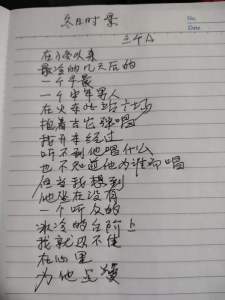 冬日时景
No.
Date
三个A
在入冬以来
最冷的几天后的
一个早晨
一个中年男人
在火车站广场
抱着吉它弹唱
我开车经过
听不到他唱什么
也不知道他为谁而唱
但当我想到
他坐在没有
一个听众的
冰冷的台阶上
我就以不住
在心里
为他